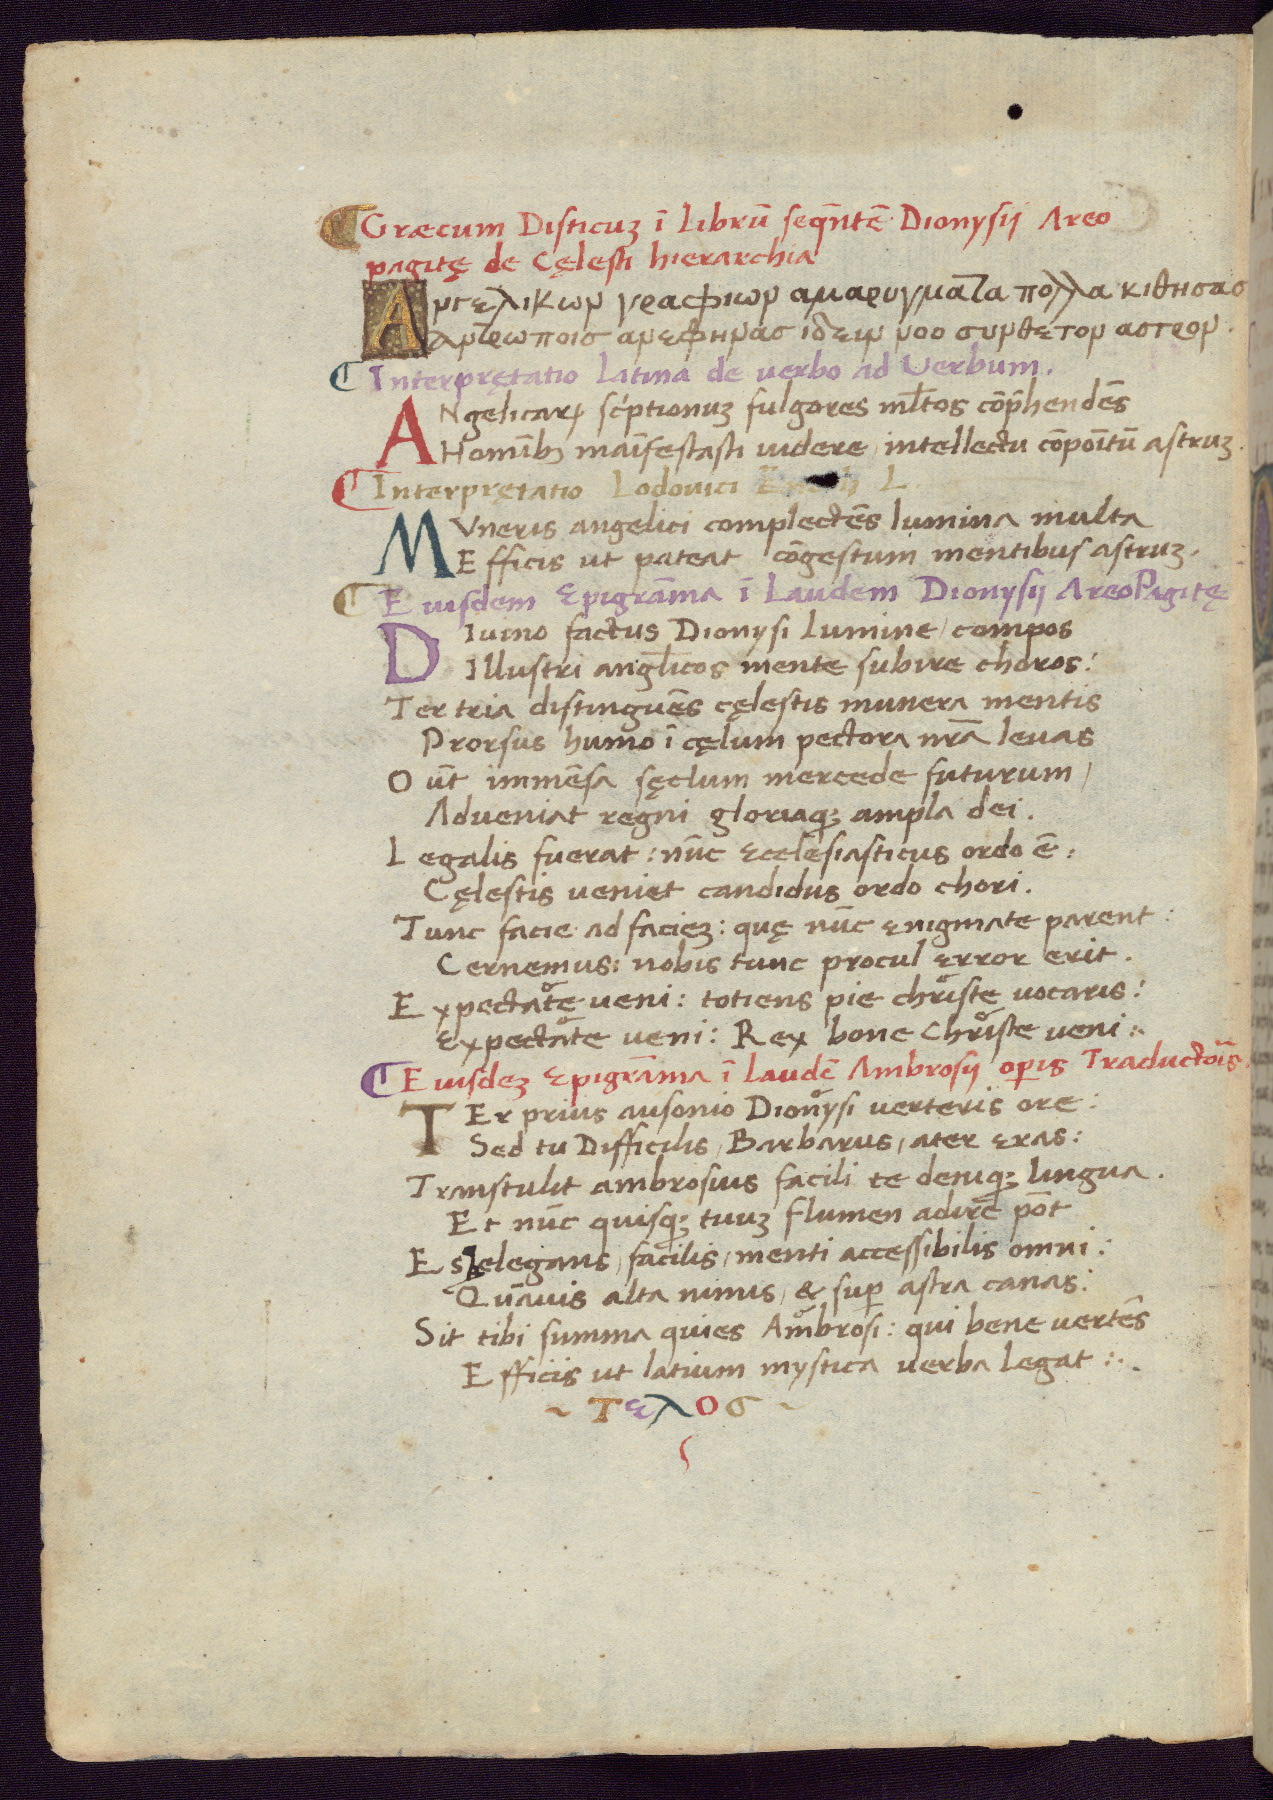 Græcum Disticuꝫ ī Librū seqn̄tē Dionysij Areo
pagitę de Cęlesti hierarchia
Aργελικωρ γραφιωρ αμαρυγματα πολλα κιθησασ
Αρτρωποισ αρεφηρασ ιδειρ ροο συρθετορ αστρορ.
Interprętatio Latina de verbo ad Verbum.
ANgelicaꝝ sc̓ptionuꝫ fulgores ml̄tos cōp̄hendēs
Homībꝫ maīfestasti videre intellectu cōpoītū astruꝫ.
Interprętatio Lodovici L
MVneris angelici complectēs lumina multa
Efficis ut pateat cōgestum mentibus astruꝫ.
Eiusdem Epigrām̄a ī Laudem Dionysij AreoPagitę
Diuino factus Dionysi lumine, compos
Illustri angl̄icos mente subire choros:
Ter tria distinguēs cęlestis munera mentis
Prorsus humo ī cęlum pectora nr̄a levas
O ut̄ immēsa sęclum mercede futurum,
Adveniat regni gloriaqꝫ ampla dei.
Legalis fuerat: nūc ecclesiasticus ordo ē:
Cęlestis veniet candidus ordo chori.
Tunc facie ad facieꝫ: quę nūc enigmate parent:
Cernemus: nobis tunc procul error erit.
Expectate veni: totiens pie christe vocaris:
Expectate veni: Rex bone Christe veni:.
Eiusdeꝫ Epigrām̄a ī laudē Ambrosij oꝑis Traductoīs.
TEr prius ausonio Dionysi verteris ore:
Sed tu Difficilis, Barbarus, ater eras:
Transtulit ambrosius facili te deniqꝫ lingua.
Et nūc quisqꝫ tuuꝫ flumen adire pōt
Es elegans, facilis, menti accessibilis omni:
Quāvis alta nimis, & suꝑ astra canas:
Sit tibi summa quies Ambrosi: qui bene vertēs
Efficis ut latium mystica verba legat:.
~ Τελοσ ~